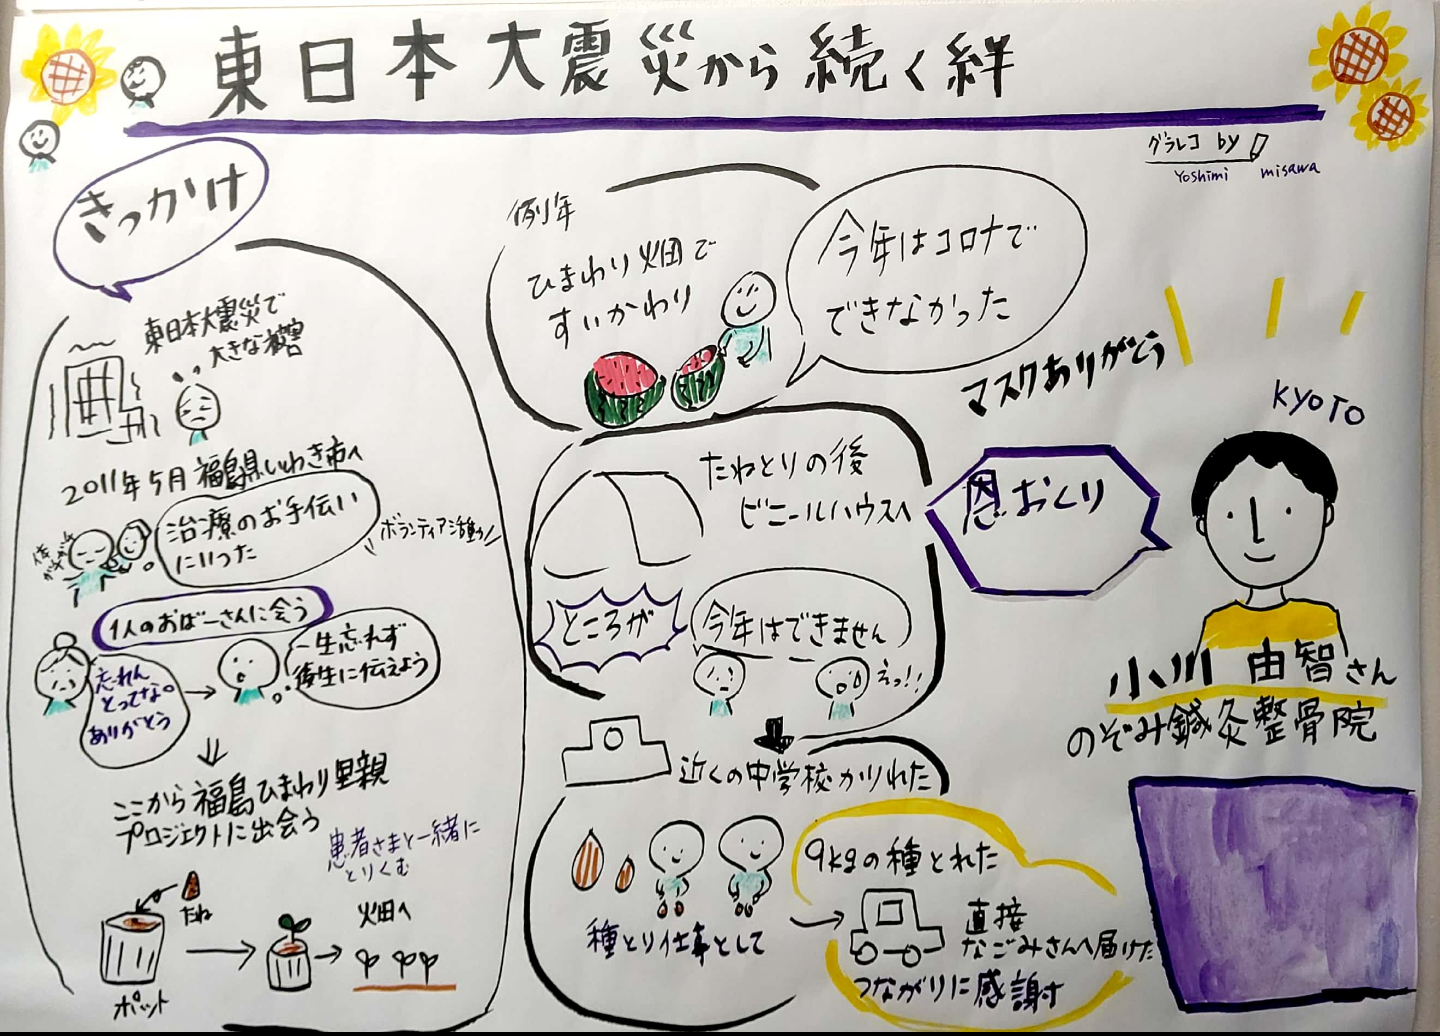 東日本大震災から続く絆
グラレコ by
Yoshimi misawa
きっかけ
東日本大震災で
大きな被害
2011年5月 福島県いわき市へ
治療のお手伝い
にいった
ボランティア活動
1人のおばーさんに会う
忘れん
とってな。
ありがとう
一生忘れず
後生に伝えよう
ここから福島ひまわり里親
プロジェクトに出会う
患者さまと一緒に
とりくむ
たね
ポット
畑へ
例年
ひまわり畑で
すいかわり
今年はコロナで
できなかった
たねとりの後
ビニールハウスへ
ところが
今年はできません
えっ!!
近くの中学校かりれた
種とり仕事として
9kgの種とれた
直接
なごみさんへ届けた
つながりに感謝す
マスクありがとう
KYOTO
恩おくり
小川 由智さん
のぞみ鍼灸整骨院